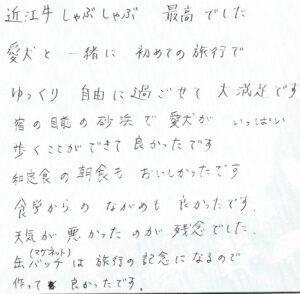 近江牛しゃぶしゃぶ 最高でした
愛犬と一緒に初めての旅行で
ゆっくり自由に過ごせて大満足です
宿の目前の砂浜で愛犬がいっぱい
歩くことができて良かったです
和定食の朝食もおいしかったです
食堂からのながめも良かったです.
天気が悪かったのが残念でした.
(マグネット)
缶バッチは旅行の記念になるので
作って良かったです.